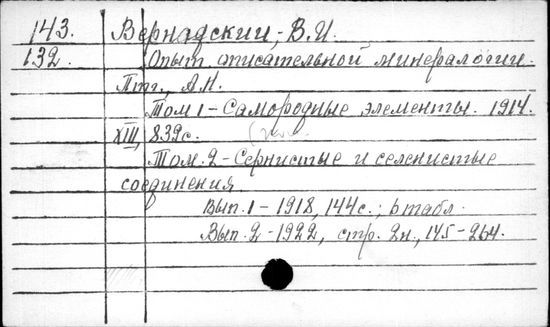 143. Вернадский, В.И.
132. Опыт описательной минералогии.
Птг., А.Н.
Том 1 - Самородные элементы. 1914.
XIII, 839с.
Том. 2 - Сернистые и селенистые
соединения.
Вып. 1 - 1918, 144с.; 6 табл.
Вып. 2 - 1922, стр. 2н., 145-264.